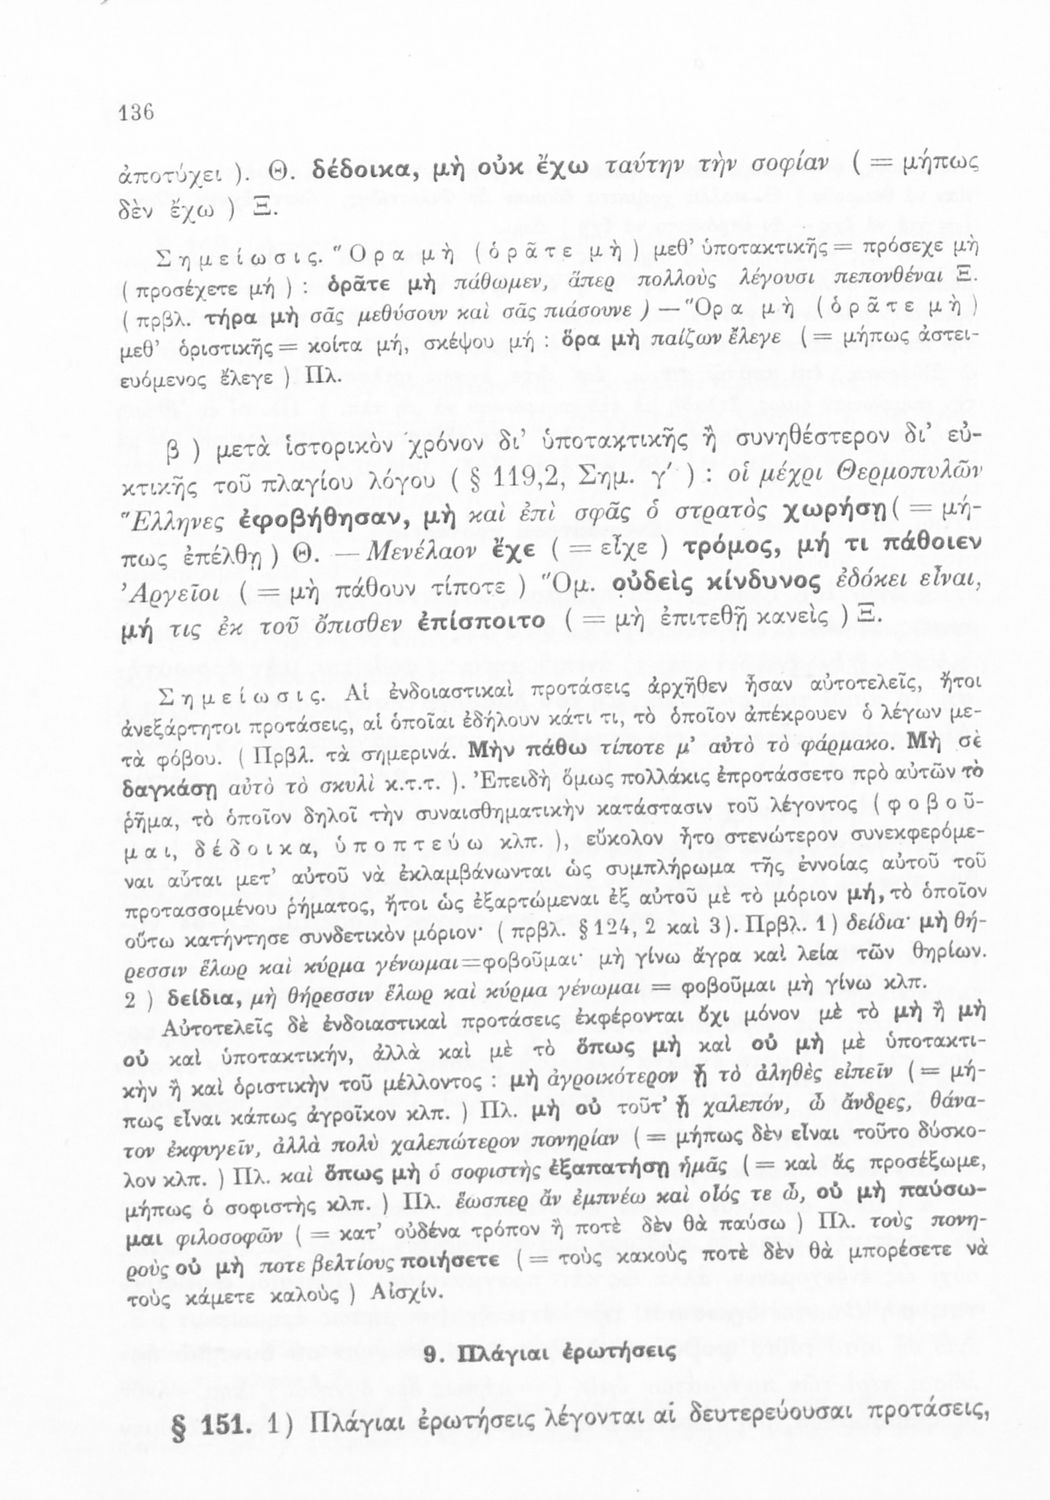 136
ἀποτύχει ). Θ. δέδοικα, μὴ οὐκ ἔχω ταύτην τὴν σοφίαν ( = μήπως
δὲν ἔχω ) Ξ.
Σημείωσις. Ὅρα μὴ (ὁρᾶτε μὴ ) μεθ’ ὑποτακτικῆς = πρόσεχε μὴ
( προσέχετε μή ) : ὁρᾶτε μὴ πάθωμεν, ἅπερ πολλοὺς λέγουσι πεπονθέναι Ξ.
( πρβλ. τήρα μὴ σᾶς μεθύσουν καὶ σᾶς πιάσουνε ) — Ὅρα μὴ (ὁρᾶτε μὴ )
μεθ’ ὁριστικῆς = κοίτα μή, σκέψου μή : ὅρα μὴ παίζων ἔλεγε ( = μήπως ἀστει-
ευόμενος ἔλεγε ) Πλ.
β ) μετὰ ἱστορικὸν χρόνον δι’ ὑποτακτικῆς ἢ συνηθέστερον δι’ εὐ-
κτικῆς τοῦ πλαγίου λόγου ( § 119,2, Σημ. γ′ ) : οἱ μέχρι Θερμοπυλῶν
Ἕλληνες ἐφοβήθησαν, μὴ καὶ ἐπὶ σφᾶς ὁ στρατὸς χωρήσῃ ( = μή-
πως ἐπέλθῃ ) Θ. — Μενέλαον ἔχε ( = εἶχε ) τρόμος, μή τι πάθοιεν
Ἀργεῖοι ( = μὴ πάθουν τίποτε ) Ὅμ. οὐδεὶς κίνδυνος ἐδόκει εἶναι,
μή τις ἐκ τοῦ ὄπισθεν ἐπίσποιτο ( = μὴ ἐπιτεθῇ κανεὶς ) Ξ.
Σημείωσις. Αἱ ἐνδοιαστικαὶ προτάσεις ἀρχῆθεν ἦσαν αὐτοτελεῖς, ἤτοι
ἀνεξάρτητοι προτάσεις, αἱ ὁποῖαι ἐδήλουν κάτι τι, τὸ ὁποῖον ἀπέκρουεν ὁ λέγων με-
τὰ φόβου. ( Πρβλ. τὰ σημερινά. Μὴν πάθω τίποτε μ’ αὐτὸ τὸ φάρμακο. Μὴ σὲ
δαγκάσῃ αὐτὸ τὸ σκυλὶ κ.τ.τ. ). Ἐπειδὴ ὅμως πολλάκις ἐπροτάσσετο πρὸ αὐτῶν τὸ
ῥῆμα, τὸ ὁποῖον δηλοῖ τὴν συναισθηματικὴν κατάστασιν τοῦ λέγοντος ( φοβοῦ-
μαι, δέδοικα, ὑποπτεύω κλπ. ), εὔκολον ἦτο στενώτερον συνεκφερόμε-
ναι αὗται μετ’ αὐτοῦ νὰ ἐκλαμβάνωνται ὡς συμπλήρωμα τῆς ἐννοίας αὐτοῦ τοῦ
προτασσομένου ῥήματος, ἤτοι ὡς ἐξαρτώμεναι ἐξ αὐτοῦ μὲ τὸ μόριον μή, τὸ ὁποῖον
οὕτω κατήντησε συνδετικὸν μόριον· ( πρβλ. § 124, 2 καὶ 3). Πρβλ. 1) δείδια· μὴ θή-
ρεσσιν ἕλωρ καὶ κύρμα γένωμαι = φοβοῦμαι· μὴ γίνω ἄγρα καὶ λεία τῶν θηρίων.
2 ) δείδια, μὴ θήρεσσιν ἕλωρ καὶ κύρμα γένωμαι = φοβοῦμαι μὴ γίνω κλπ.
Αὐτοτελεῖς δὲ ἐνδοιαστικαὶ προτάσεις ἐκφέρονται ὄχι μόνον μὲ τὸ μὴ ἢ μὴ
οὐ καὶ ὑποτακτικήν, ἀλλὰ καὶ μὲ τὸ ὅπως μὴ καὶ οὐ μὴ μὲ ὑποτακτι-
κὴν ἢ καὶ ὁριστικὴν τοῦ μέλλοντος : μὴ ἀγροικότερον ᾖ τὸ ἀληθὲς εἰπεῖν ( = μή-
πως εἶναι κάπως ἀγροῖκον κλπ. ) Πλ. μὴ οὐ τοῦτ’ ᾖ χαλεπόν, ὦ ἄνδρες, θάνα-
τον ἐκφυγεῖν, ἀλλὰ πολὺ χαλεπώτερον πονηρίαν ( = μήπως δὲν εἶναι τοῦτο δύσκο-
λον κλπ. ) Πλ. καὶ ὅπως μὴ ὁ σοφιστὴς ἐξαπατήσῃ ἡμᾶς ( = καὶ ἂς προσέξωμε,
μήπως ὁ σοφιστὴς κλπ. ) Πλ. ἕωσπερ ἂν ἐμπνέω καὶ οἷός τε ὦ, οὐ μὴ παύσω-
μαι φιλοσοφῶν ( = κατ’ οὐδένα τρόπον ἢ ποτὲ δὲν θὰ παύσω ) Πλ. τοὺς πονη-
ροὺς οὐ μὴ ποτε βελτίους ποιήσετε ( = τοὺς κακοὺς ποτὲ δὲν θὰ μπορέσετε νὰ
τοὺς κάμετε καλοὺς ) Αἰσχίν.
9. Πλάγιαι ἐρωτήσεις
§ 151. 1) Πλάγιαι ἐρωτήσεις λέγονται αἱ δευτερεύουσαι προτάσεις,